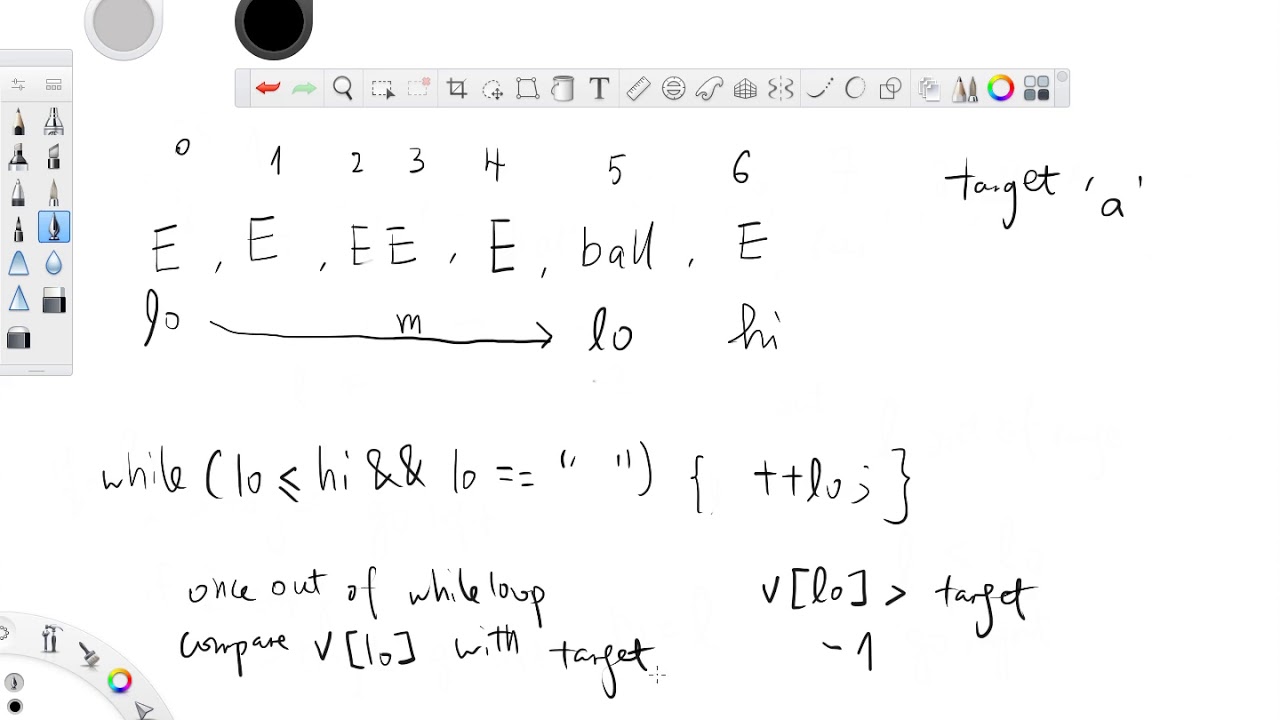 0 1 2 3 4 5 6
target 'a'
E , E , E E , E , ball , E
lo m lo hi
while (lo ≤ hi && lo == " ") { ++lo; }
once out of while loop
compare v[lo] with target
v[lo] > target
-1